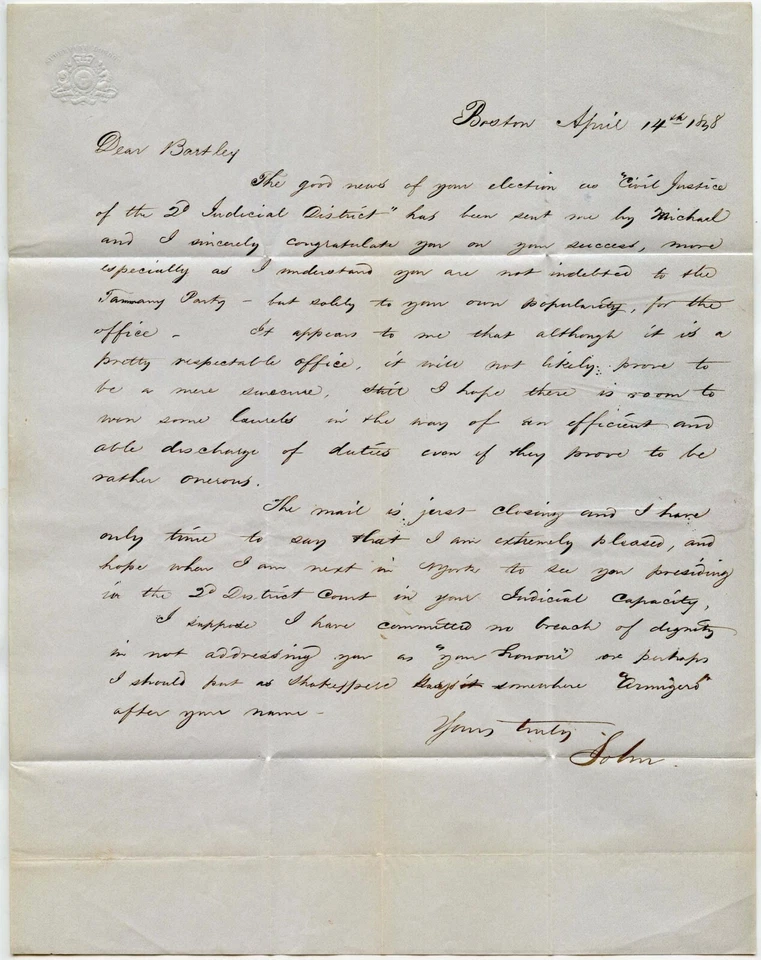 Boston April 14th 1848
Dear Bartley
The good news of your election as "Civil Justice
of the 2d Judicial District" has been sent me by Michael
and I sincerely congratulate you on your success, more
especially as I understand you are not indebted to the
Tammany Party – but solely to your own popularity, for the
office – It appears to me that although it is a
pretty respectable office, it will not likely prove to
be a mere sinecure, still I hope there is room to
win some laurels in the way of an efficient and
able discharge of duties even if they prove to be
rather onerous.
The mail is just closing and I have
only time to say that I am extremely pleased, and
hope when I am next in NYork to see you presiding
in the 2d District Court in your Judicial Capacity,
I suppose I have committed no breach of dignity
in not addressing you as "your honour" or perhaps
I should put as Shakespere somewhere "Armigero"
after your name –
Yours truly
John.